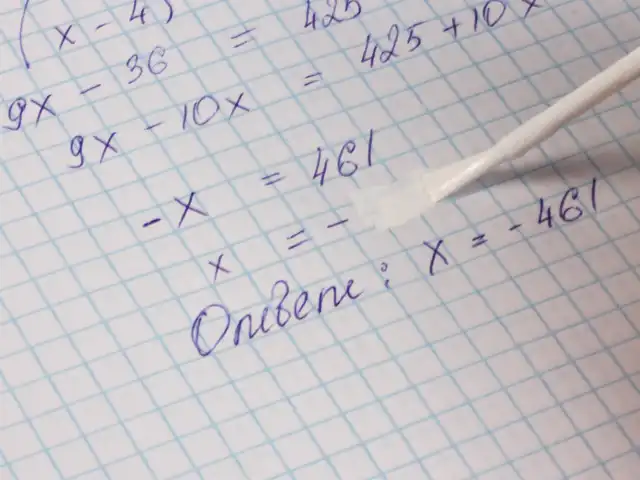 (x - 4)
9x - 36 = 425 + 10x
9x - 10x = 425
-x = 461
x = -
Ответ: x = - 461